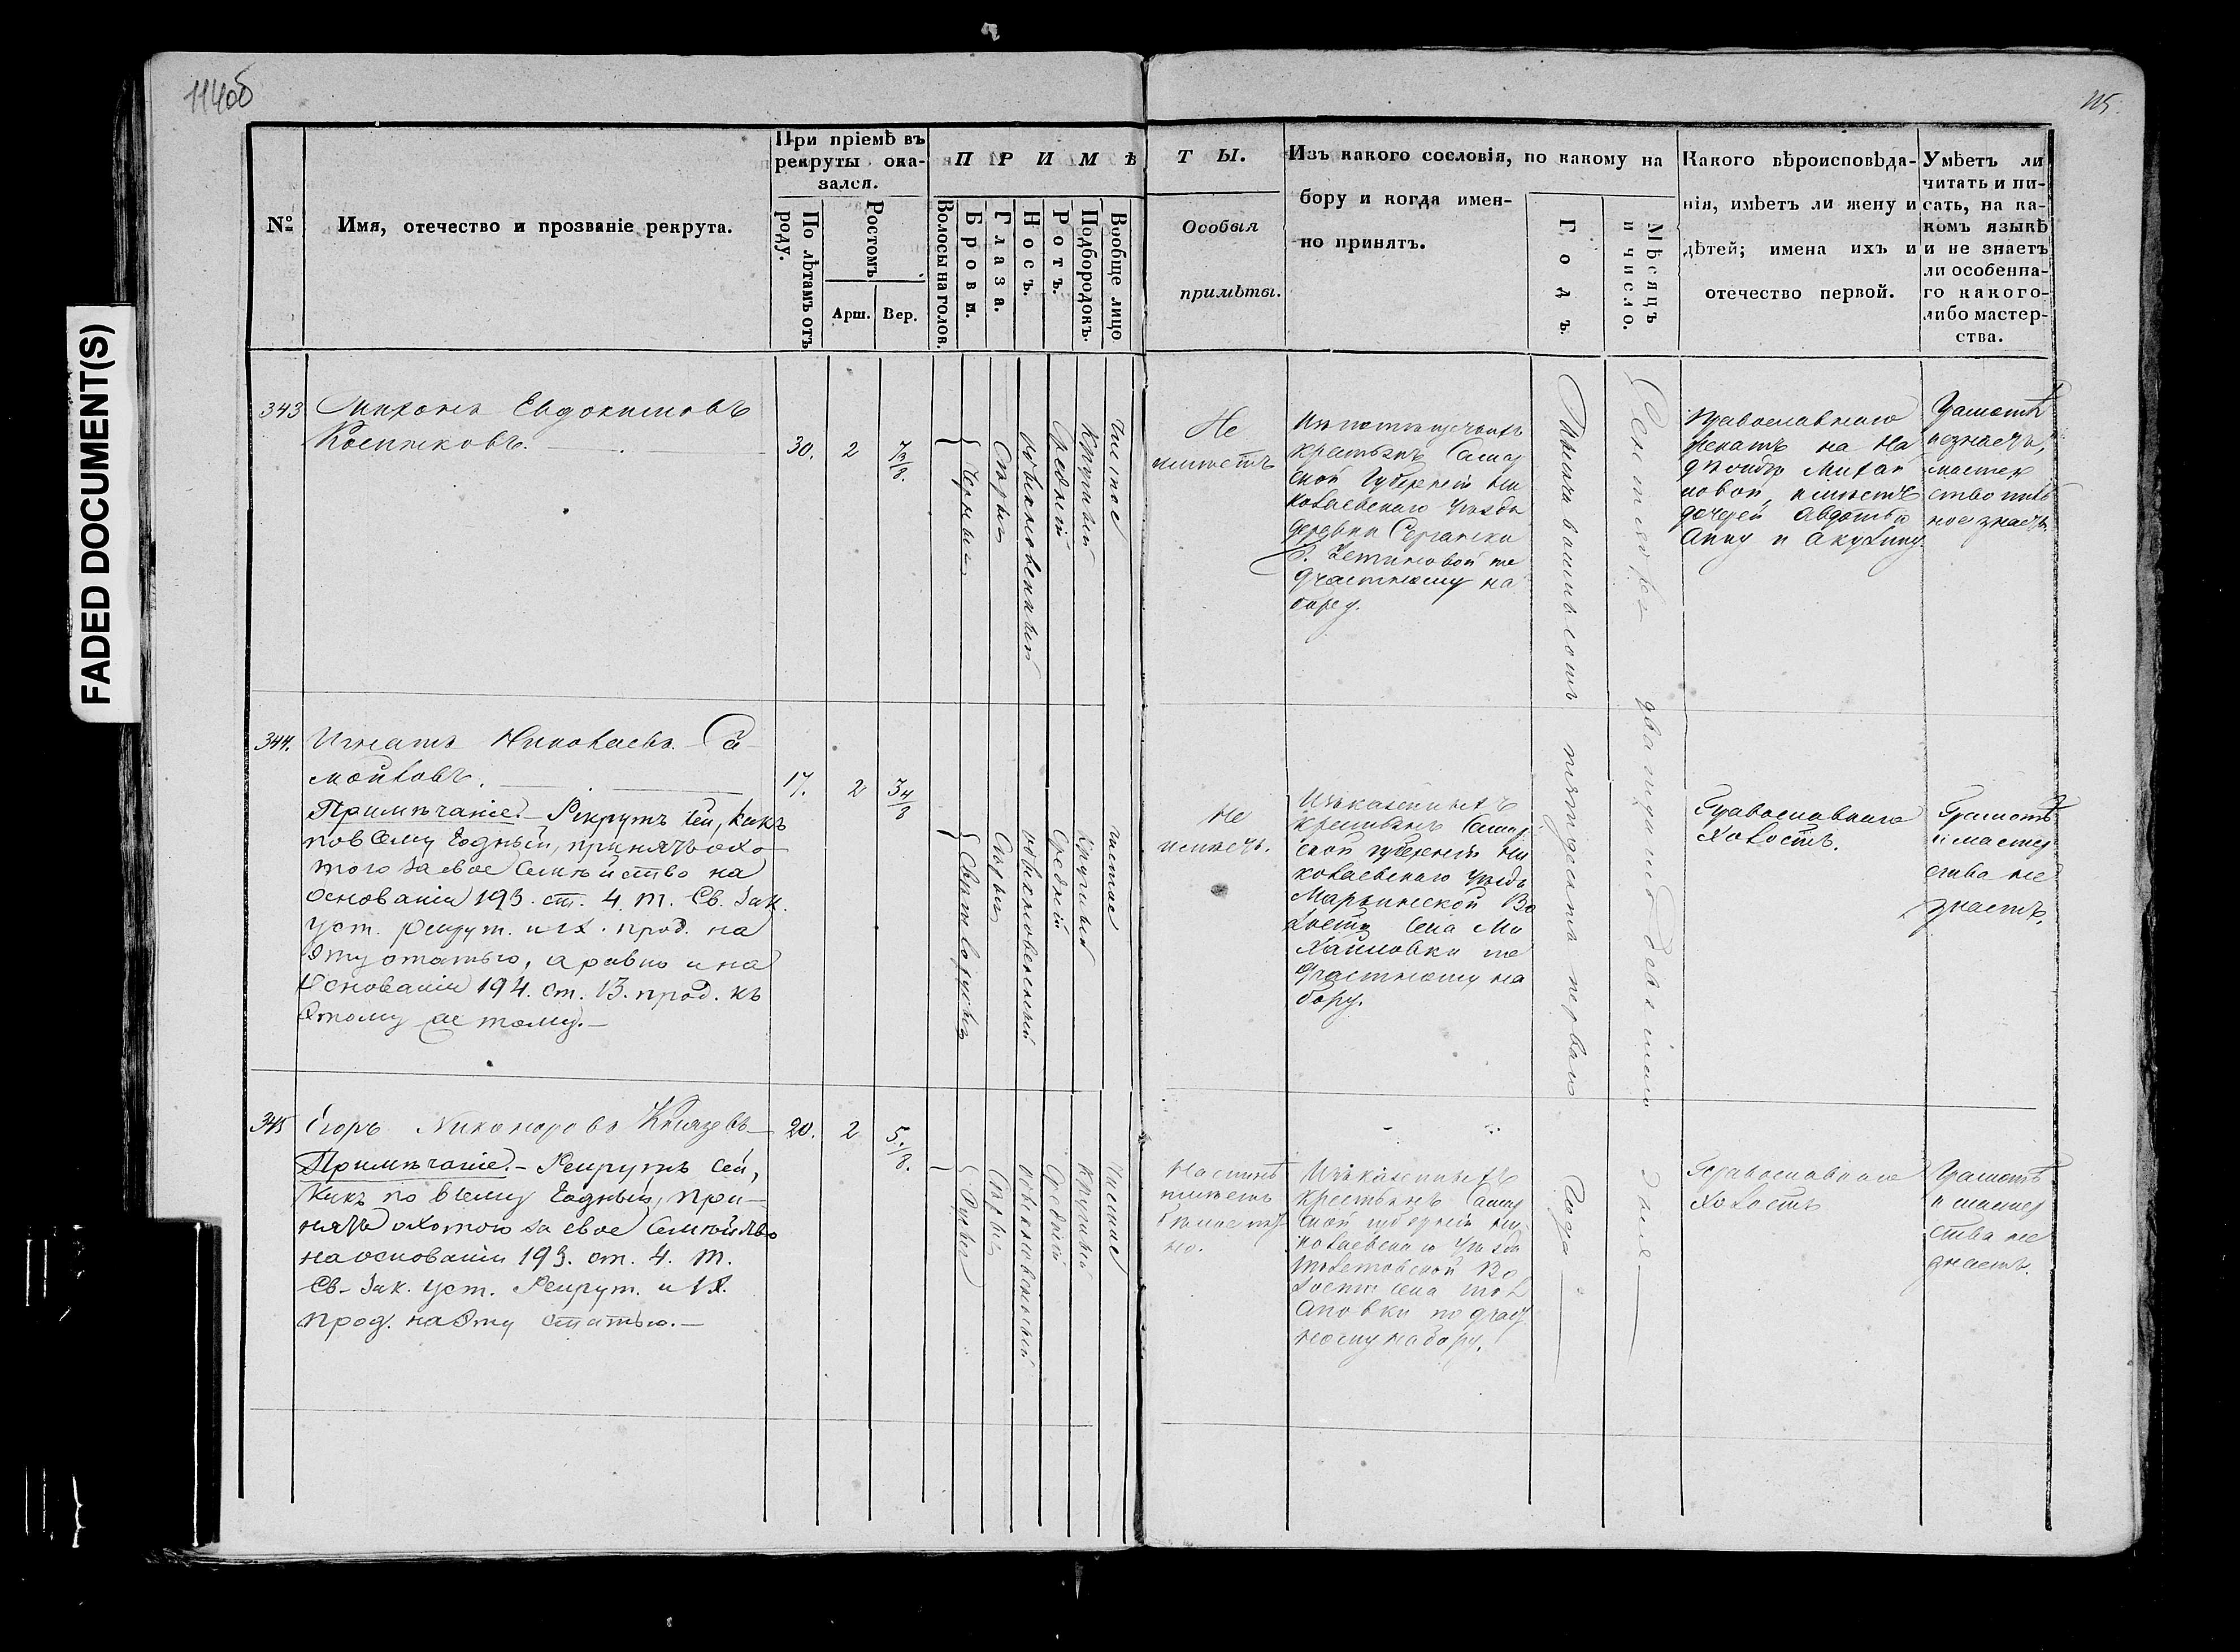 114об
115.
FADED DOCUMENT(S)
№
Имя, отечество и прозваніе рекрута.
При пріемѣ въ
рекруты ока-
зался.
По лѣтамъ отъ
роду.
Ростомъ
Арш.
Вер.
ПРИМѢ
ТЫ.
Волосы на голов.
Брови.
Глаза.
Носъ.
Ротъ.
Подбородокъ.
Вообще лицо
Особыя
примѣты.
Изъ какого сословія, по какому на
бору и когда имен-
но принятъ.
Годъ.
Мѣсяцъ
и число.
Какого вѣроисповѣда-
нія, имѣетъ ли жену и
дѣтей; имена ихъ и
отечество первой.
Умѣетъ ли
читать и пи-
сать, на ка-
комъ языкѣ
и не знаетъ
ли особенна-
го какого-
либо мастер-
ства.
343
Евдокимовъ
30.
2
Черныя
Сѣрыя
обыкновенный
Средній
Круглый
Чистое
Не
имѣетъ
крестьянъ Самар
ской Губерніи Ни
колаевскаго Уѣзда
деревни
участному на
бору.
Тысяча восемьсотъ пятьдесятъ перваго
Сентября двадцать девятаго
Православнаго
Женатъ на На
имѣетъ
дочерей Авдотью
Анну и Акулину.
Грамотѣ
незнаетъ,
мастер
344.
Игнатъ Николаевъ Са
мойловъ.
17.
2
3 4/8
Примѣчаніе. Рекрутъ сей, какъ
повсему Годный, принятъ охо
тою за свое Семѣйство на
основаніи 193. ст. 4. т. Св. Зак.
Уст. рекрут. и IX. прод. на
эту статью, а равно и на
основаніи 194. ст. 13. прод. къ
этому же тому.
Свѣтлорусыя
Сѣрыя
обыкновенный
Средній
Круглый
чистое
Не
имѣетъ.
Изъ казенныхъ
крестьянъ Самар
ской губерніи Ни
колаевскаго Уѣзда
Марьинской Во
лости Села Ми
хайловки по
участному на
бору.
Православнаго
Холостъ.
Грамотѣ
и мастер
ства не
знаетъ.
345
Егоръ Никоноровъ Князевъ
20.
2
5./8.
Примѣчаніе. Рекрутъ сей,
какъ по всему Годный, при-
нятъ охотою за свое Семѣйство
на основаніи 193. ст. 4. т.
Св. Зак. Уст. Рекрут. и IX.
прод. на эту статью.
Русыя
Сѣрыя
обыкновенный
Средній
Круглый
Чистое
имѣетъ
Изъ казенныхъ
крестьянъ Самар
ской губерніи Ни
колаевскаго Уѣзда
Во
лости села
по участ
ному набору.
Года
дня
Православнаго
Холостъ
Грамотѣ
и мастер
ства не
знаетъ.